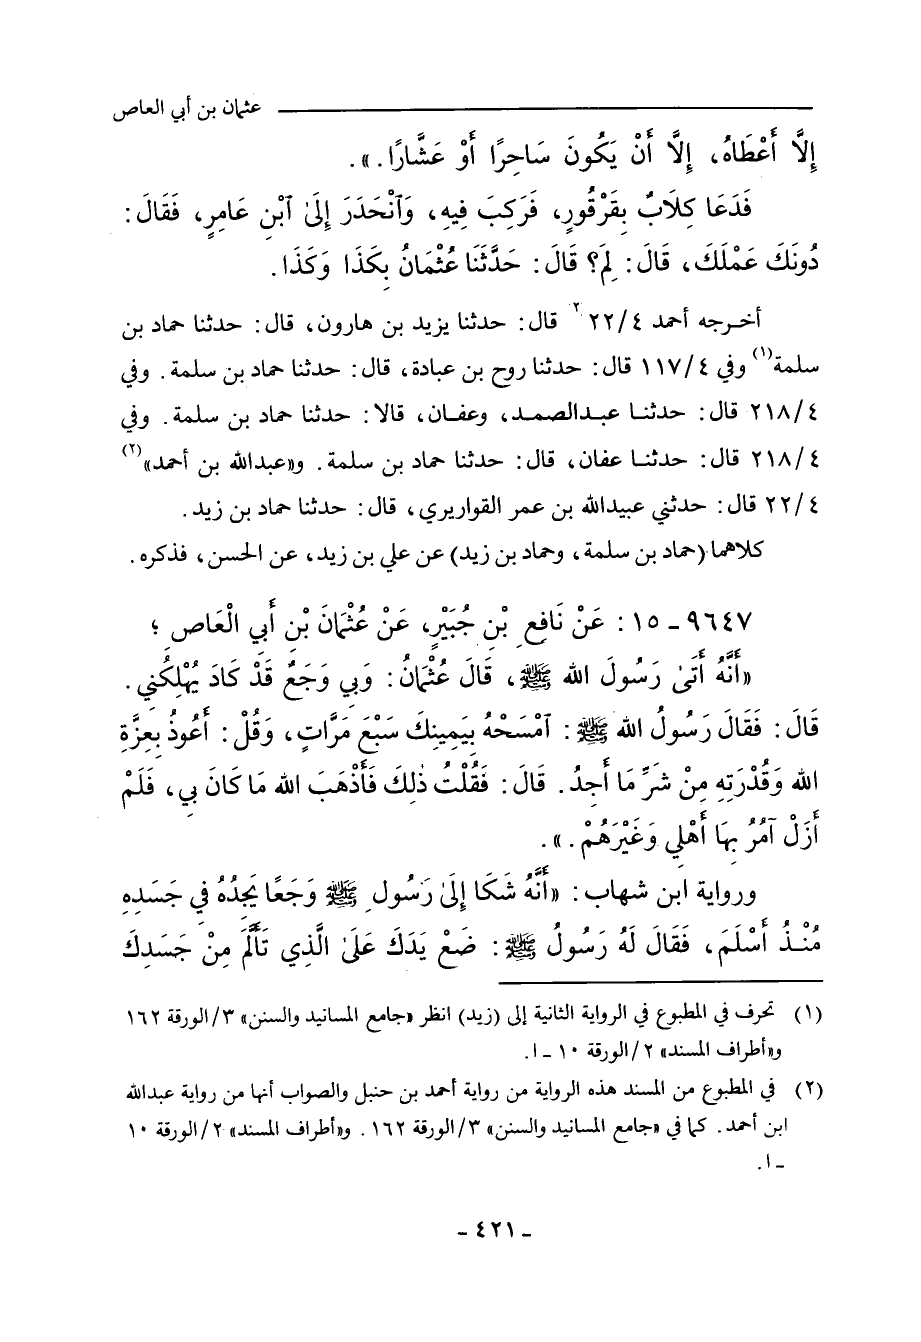 عثمان بن أبي العاص
إِلَّا أَعْطَاهُ، إِلَّا أَنْ يَكُونَ سَاحِرًا أَوْ عَشَّارًا.».
فَدَعَا كِلَابٌ بِقَرْقُورٍ، فَرَكِبَ فِيهِ، وَٱنْحَدَرَ إِلَىٰ ٱبْنِ عَامِرٍ، فَقَالَ:
دُونَكَ عَمْلَكَ، قَالَ: لِمَ؟ قَالَ: حَدَّثَنَا عُثْمَانُ بِكَذَا وَكَذَا.
أخرجه أحمد ٢٢/٤ ٢ قال: حدثنا يزيد بن هارون، قال: حدثنا حماد بن
سلمة(١) وفي ١١٧/٤ قال: حدثنا روح بن عبادة، قال: حدثنا حماد بن سلمة. وفي
٢١٨/٤ قال: حدثنا عبدالصمد، وعفان، قالا: حدثنا حماد بن سلمة. وفي
٢١٨/٤ قال: حدثنا عفان، قال: حدثنا حماد بن سلمة. و«عبدالله بن أحمد»(٢)
٢٢/٤ قال: حدثني عبيدالله بن عمر القواريري، قال: حدثنا حماد بن زيد.
كلاهما (حماد بن سلمة، وحماد بن زيد) عن علي بن زيد، عن الحسن، فذكره.
٩٦٤٧ - ١٥: عَنْ نَافِعِ بْنِ جُبَيْرٍ، عَنْ عُثْمَانَ بْنِ أَبِي الْعَاصِ؛
«أَنَّهُ أَتَىٰ رَسُولَ الله ﷺ، قَالَ عُثْمَانُ: وَبِي وَجَعٌ قَدْ كَادَ يُهْلِكُنِي.
قَالَ: فَقَالَ رَسُولُ الله ﷺ: ٱمْسَحْهُ بِيَمِينِكَ سَبْعَ مَرَّاتٍ، وَقُلْ: أَعُوذُ بِعِزَّةِ
الله وَقُدْرَتِهِ مِنْ شَرِّ مَا أَجِدُ. قَالَ: فَقُلْتُ ذٰلِكَ فَأَذْهَبَ الله مَا كَانَ بِي، فَلَمْ
أَزَلْ آمُرُ بِهَا أَهْلِي وَغَيْرَهُمْ.».
ورواية ابن شهاب: «أَنَّهُ شَكَا إِلَىٰ رَسُولِ ﷺ وَجَعًا يَجِدُهُ فِي جَسَدِهِ
مُنْذُ أَسْلَمَ، فَقَالَ لَهُ رَسُولُ ﷺ: ضَعْ يَدَكَ عَلَىٰ الَّذِي تَأَلَّمَ مِنْ جَسَدِكَ
(١) تحرف في المطبوع في الرواية الثانية إلى (زيد) انظر «جامع المسانيد والسنن» ٣/الورقة ١٦٢
و«أطراف المسند» ٢/الورقة ١٠ - ا.
(٢) في المطبوع من المسند هذه الرواية من رواية أحمد بن حنبل والصواب أنها من رواية عبدالله
ابن أحمد. كما في «جامع المسانيد والسنن» ٣/الورقة ١٦٢. و«أطراف المسند» ٢/الورقة ١٠
- ا.
- ٤٢١ -